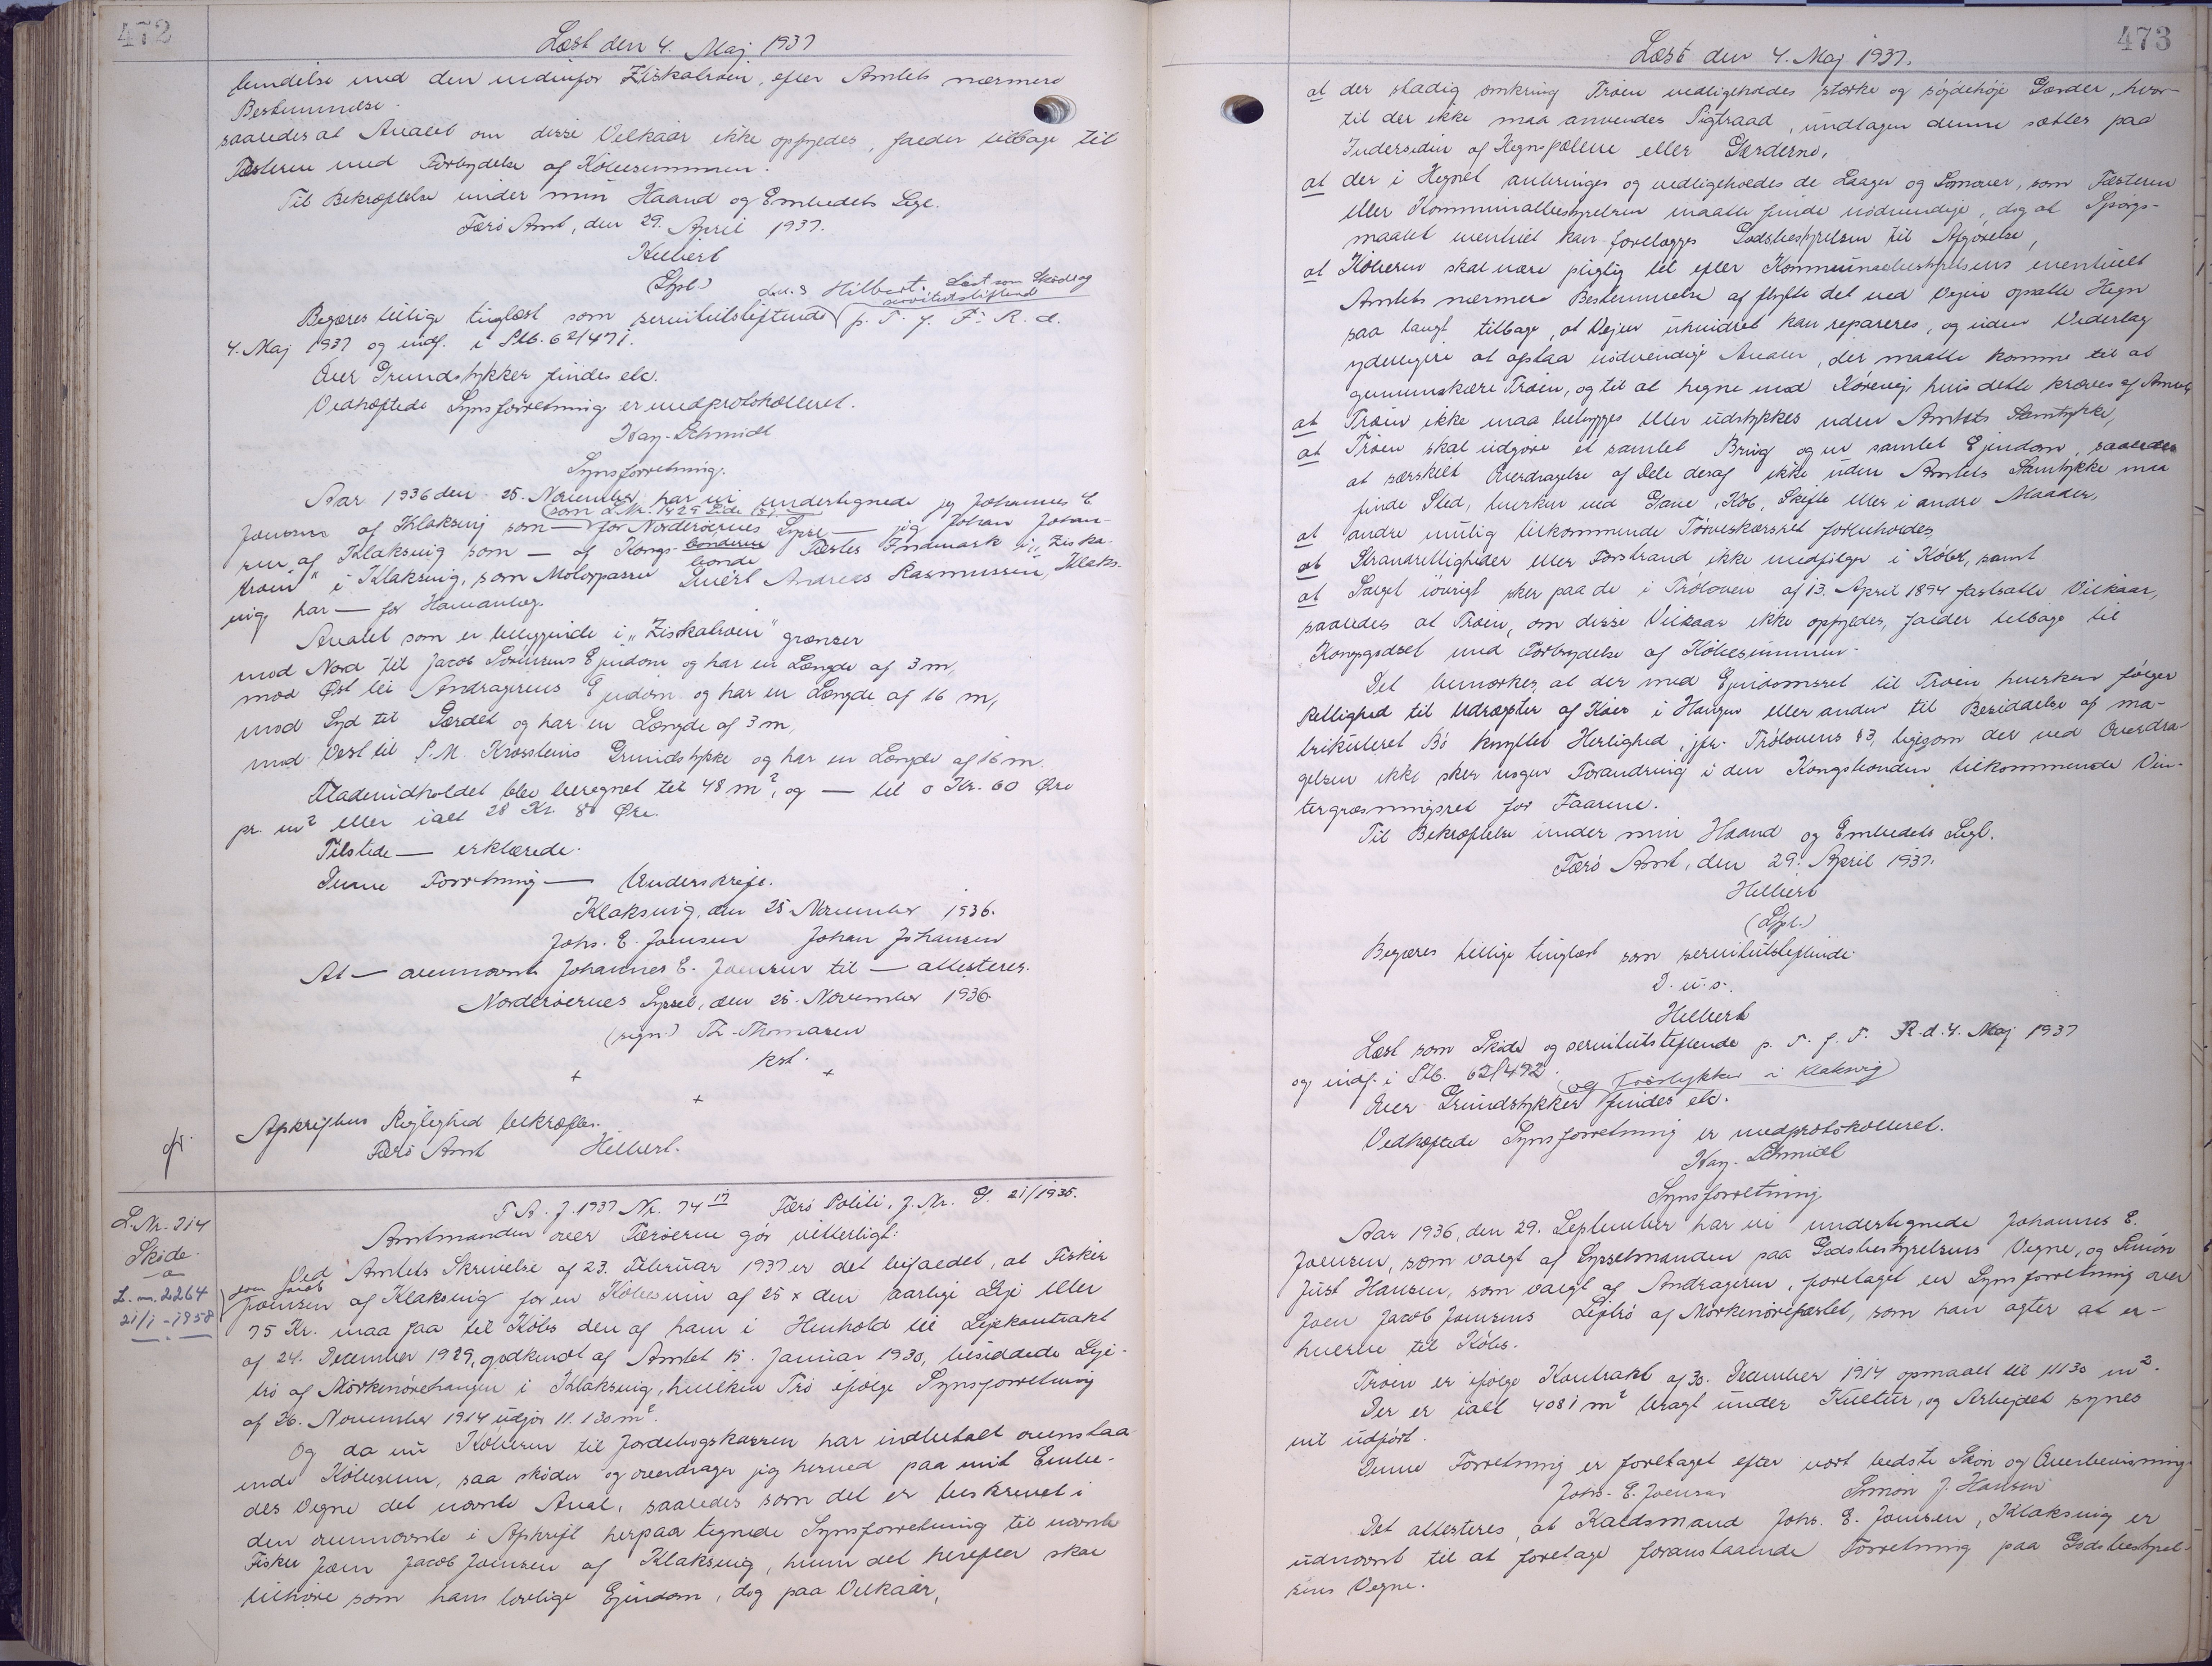 472
Læst den 4. Maj 1937
bindelse med den udenfor Ziskatrøen, efter Amtets nærmere
Bestemmelse.
saaledes at Arealet om disse Vilkaar ikke opfyldes, falder tilbage til
Fæsteren med Fortrydelse af Købesummen.
Til Bekræftelse under min Haand og Embedets Segl.
Færø Amt, den 29. April 1937.
Hilbert
(Sgl.)
d.u.s Hilbert. Læst som Skøde og
servitutstiftend
Begæres tillige tinglæst som servitutstiftende p. T. f. F. R. d.
4. Maj 1937 og indf. i Sk. 62/471.
Over Grundstykker findes etc.
Vedhæftede Synsforretning er medprotokolleret.
Kay-Schmidt
Synsforretning.
Aar 1936 den 25. November har vi undertegnede jeg Johannes E
(som L.Nr. 1429 Side 151)
Joensen af Klaksvig som — for Norderøernes Syssel — jeg Johan Johan-
sen af Klaksvig som — af Kongs-bonderne Fæstes Indmark i "Ziska-
bonde
trøen" i Klaksvig, som Motorpasser Guért Andreas Rasmussen, Klaks-
vig har — for Havanlæg.
Arealet som er beliggende i "Ziskatrøen" grænser
mod Nord til Jacob Sörensens Ejendom og har en Længde af 3 m,
mod Øst til Andragerens Ejendom og har en Længde af 16 m,
mod Syd til Gærdet og har en Længde af 3 m,
mod Vest til P.M. Krossteins Grundstykke og har en Længde af 16 m.
Fladeindholdet blev beregnet til 48 m², og — til 0 Kr. 60 Øre
pr. m² eller ialt 28 Kr. 80 Øre.
Tilstede — erklærede.
Denne Forretning — Underskrift.
Klaksvig, den 25 November 1936.
Johs. E. Joensen Johan Johansen
At — ovennævnte Johannes E. Joensen til — attesteres.
Norderøernes Syssel, den 25. November 1936
(sign.) Th. Thomasen
kst.
+ + +
Afskriftens Rigtighed bekræftes.
Færø Amt Hilbert.
T.R. J. 1937 Nr. 74 17 Færø Politi, J. Nr. G. 21/1935.
L. Nr. 314
Skøde.
a
L. nr. 2264
21/1-1958
Amtmanden over Færøerne gør vitterligt:
Ved Amtets Skrivelse af 23. Februar 1937 er det bifaldet, at Fisker
Joen Jacob
Joensen af Klaksvig for en Købesum af 25 x den aarlige Leje eller
75 Kr. maa faa til Købs den af ham i Henhold til Lejekontrakt
af 24. December 1929, godkendt af Amtet 15. Januar 1930, besiddede Leje-
trø af Mørkenørehaugen i Klaksvig, hvilken Trø ifølge Synsforretning
af 26. November 1914 udgør 11.130 m².
Og da nu Køberen til Jordebogskassen har indbetalt ovenstaa
ende Købesum, saa skøder og overdrager jeg herved paa mit Embe-
des Vegne det nævnte Areal, saaledes som det er beskrevet i
den ovennævnte i Afskrift herpaa tegnede Synsforretning til nævnte
Fisker Joen Jacob Joensen af Klaksvig, hvem det herefter skal
tilhøre som hans lovlige Ejendom, dog paa Vilkaar,
473
Læst den 4. Maj 1937.
at der stadig omkring Trøen vedligeholdes stærke og højdehøje Gærder, hvor-
til der ikke maa anvendes Pigtraad, undtagen denne sættes paa
Indersiden af Hegnspælene eller Gærderne,
at der i Hegnet anbringes og vedligeholdes de Laager og Somover, som Fæsteren
eller Kommunalbestyrelsen maatte finde nødvendige, dog at Spørgs-
maalet eventuelt kan forelægges Godsbestyrelsen til Afgørelse,
at Køberen skal være pligtig til efter Kommunalbestyrelsens eventuelt
Amtets nærmere Bestemmelse at flytte det ved Vejen opsatte Hegn
saa langt tilbage, at Vejen uhindret kan repareres, og uden Vederlag
yderligere at afstaa nødvendige Arealer, der maatte komme til at
gennemskære Trøen, og til at hegne mod Kørevej, hvis dette kræves af Amtet,
at Trøen ikke maa bebygges eller udstykkes uden Amtets Samtykke,
at Trøen skal udgøre et samlet Brug og en samlet Ejendom, saaledes
at særskilt Overdragelse af Dele deraf ikke uden Amtets Samtykke maa
finde Sted, hverken ved Gave, Køb, Skifte eller i andre Maader,
at andre mulig tilkommende Tørveskærsret forbeholdes,
at Strandrettigheder eller Forstrand ikke medfølger i Købet, samt
at Salget iøvrigt sker paa de i Trøloven af 13. April 1894 fastsatte Vilkaar,
saaledes at Trøen, om disse Vilkaar ikke opfyldes, falder tilbage til
Kongsgodset med Fortrydelse af Købesummen.
Det bemærkes, at der med Ejendomsret til Trøen hverken følger
Rettighed til Udrøgter af Køer i Haugen eller anden til Besiddelse af ma-
trikuleret Bø knyttet Herlighed, jfr. Trølovens §3, ligesom der ved Overdra-
gelsen ikke sker nogen Forandring i den Kongsbonden tilkommende Vin-
tergræsningsret for Faarene.
Til Bekræftelse under min Haand og Embedets Segl.
Færø Amt, den 29. April 1937.
Hilbert
(Sgl.)
Begæres tillige tinglæst som servitutstiftende.
D. u. s.
Hilbert
Læst som Skøde og servitutstiftende p. T. f. F. R. d. 4. Maj 1937
og indf. i Sk. 62/472.
(og Trøstykker i Klaksvig)
Over Grundstykker findes etc.
Vedhæftede Synsforretning er medprotokolleret.
Kay. Schmidt
Synsforretning
Aar 1936, den 29. September har vi undertegnede Johannes E.
Joensen, som valgt af Sysselmanden paa Godsbestyrelsens Vegne, og Simon
Just Hansen, som valgt af Andrageren, foretaget en Synsforretning over
Joen Jacob Joensens Lejetrø af Mørkenørefæstet, som han agter at er-
hverve til Købs.
Trøen er ifølge Kontrakt af 30. December 1914 opmaalt til 11130 m².
Der er ialt 4081 m² bragt under Kultur, og Arbejdet synes
vel udført.
Denne Forretning er foretaget efter vort bedste Skøn og Overbevisning.
Johs. E. Joensen Simon J. Hansen
Det attesteres, at Raadsmand Johs. E. Joensen, Klaksvig er
udnævnt til at foretage foranstaaende Forretning paa Godsbestyrel-
sens Vegne.